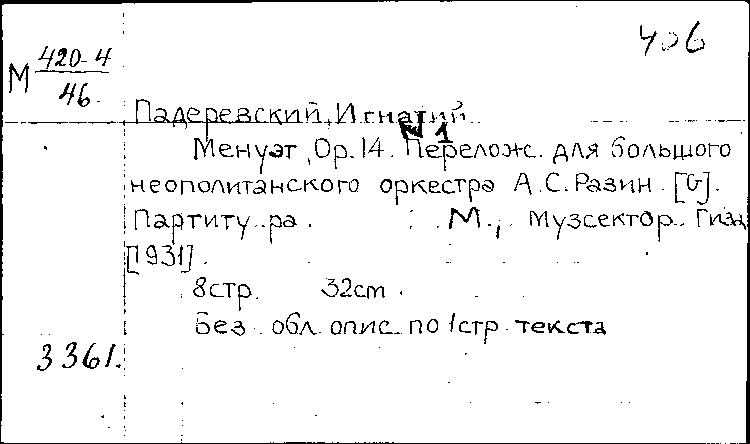 406
М 420-4
46.
Падеревский, Игнатий
№ 1
Менуэт, Op. 14. Перелож. для большого
неополитанского оркестра А.С. Разин. [G].
Партиту ра. М., Музсектор. Гиза
[1931].
8 стр. 32 cm.
Без обл. опис. по 1 стр. текста
3361.